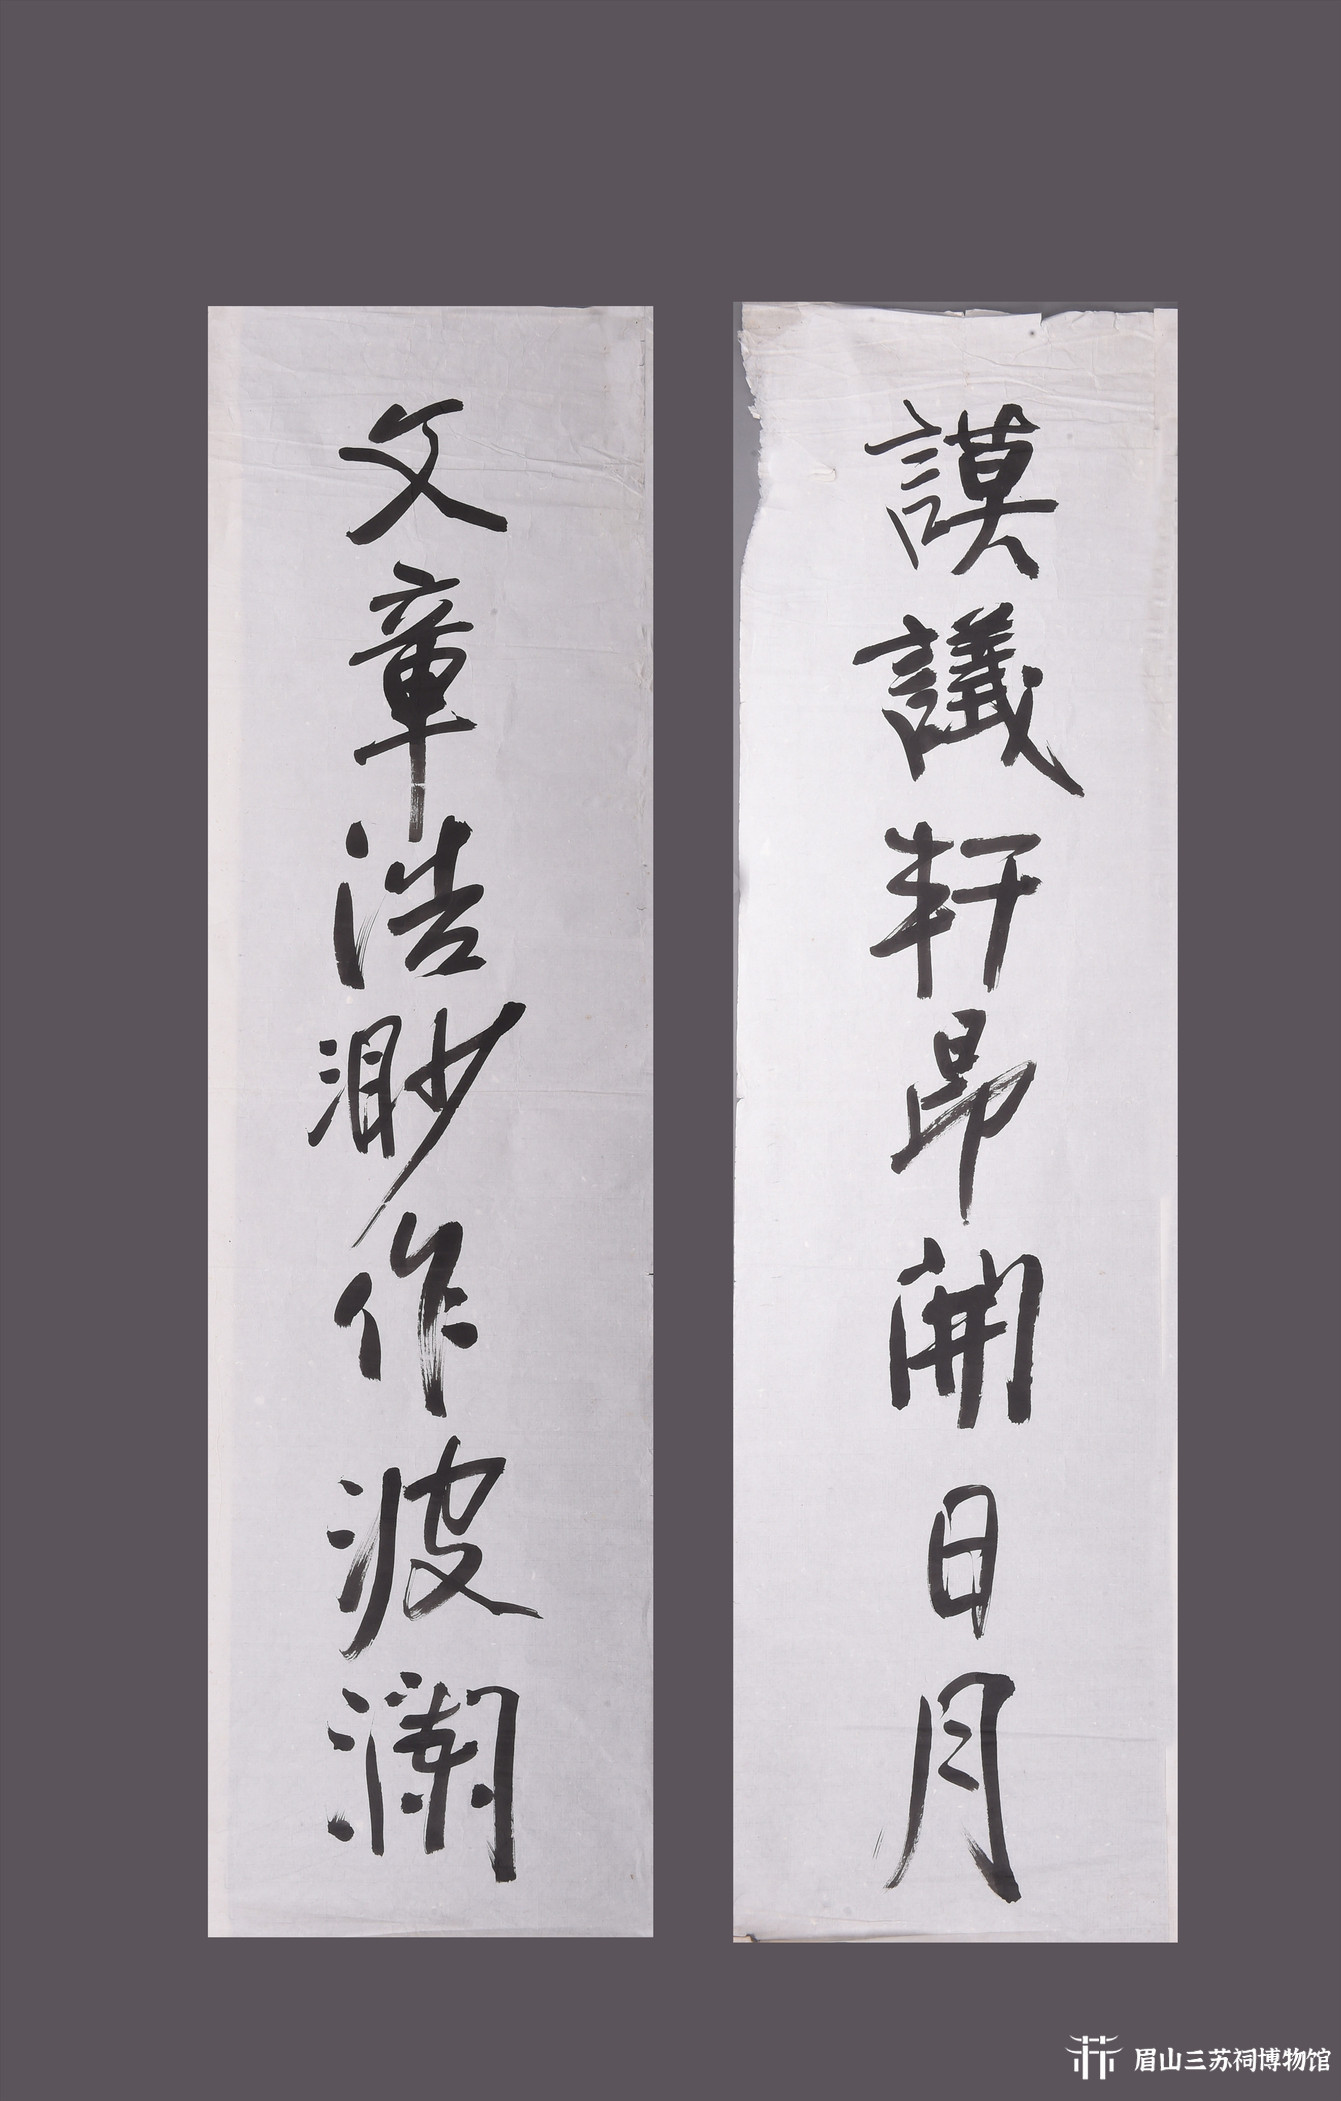 謨議軒昂開日月
文章浩渺作波瀾
眉山三苏祠博物馆